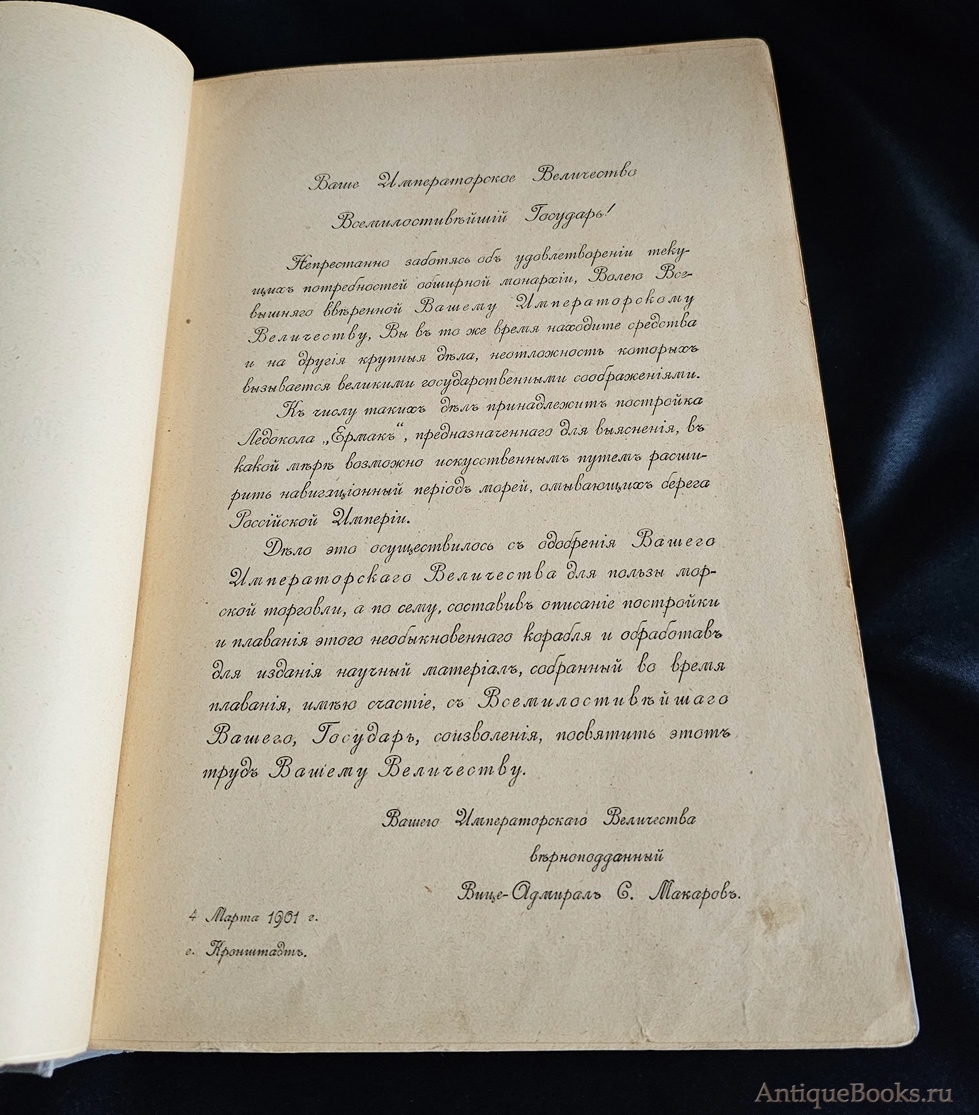 Ваше Императорское Величество
Всемилостивѣйшій Государь!
Непрестанно заботясь объ удовлетвореніи теку-
щихъ потребностей обширной монархіи, Волею Все-
вышняго ввѣренной Вашему Императорскому
Величеству, Вы въ то же время находите средства
и на другія крупныя дѣла, неотложность которыхъ
вызывается великими государственными соображеніями.
Къ числу такихъ дѣлъ принадлежитъ постройка
Ледокола „Ермакъ“, предназначеннаго для выясненія, въ
какой мѣрѣ возможно искусственнымъ путемъ расши-
рить навигаціонный періодъ морей, омывающихъ берега
Россійской Имперіи.
Дѣло это осуществилось съ одобренія Вашего
Императорскаго Величества для пользы мор-
ской торговли, а по сему, составивъ описаніе постройки
и плаванія этого необыкновеннаго корабля и обработавъ
для изданія научный матеріалъ, собранный во время
плаванія, имѣю счастіе, съ Всемилостивѣйшаго
Вашего, Государь, соизволенія, посвятить этотъ
трудъ Вашему Величеству.
Вашего Императорскаго Величества
вѣрноподданный
Вице-Адмиралъ С. Макаровъ.
4 Марта 1901 г.
г. Кронштадтъ.
AntiqueBooks.ru